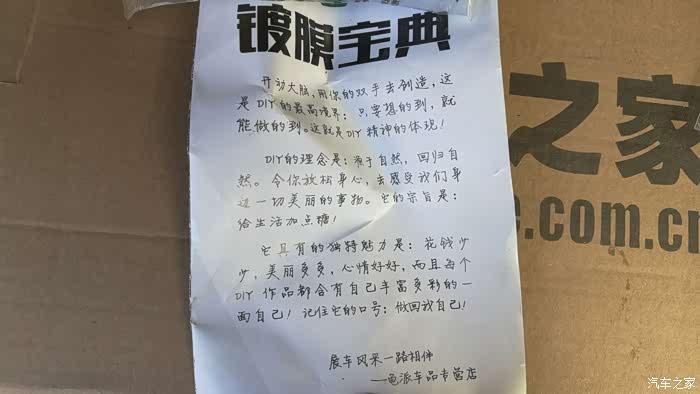 镀膜宝典
开动大脑,用你的双手去创造,这
是DIY的最高境界:只要想的到,就
能做的到。这就是DIY精神的体现!
DIY的理念是:源于自然,回归自
然。令你放松身心,去感受我们身
边一切美丽的事物。它的宗旨是:
给生活加点糖!
它具有的独特魅力是:花钱少
少,美丽多多,心情好好,而且每个
DIY作品都含有自己丰富多彩的一
面自己!记住它的口号:做回我自己!
展车风采一路相伴
——龟派车品专营店
之家
e.com.cn
汽车之家